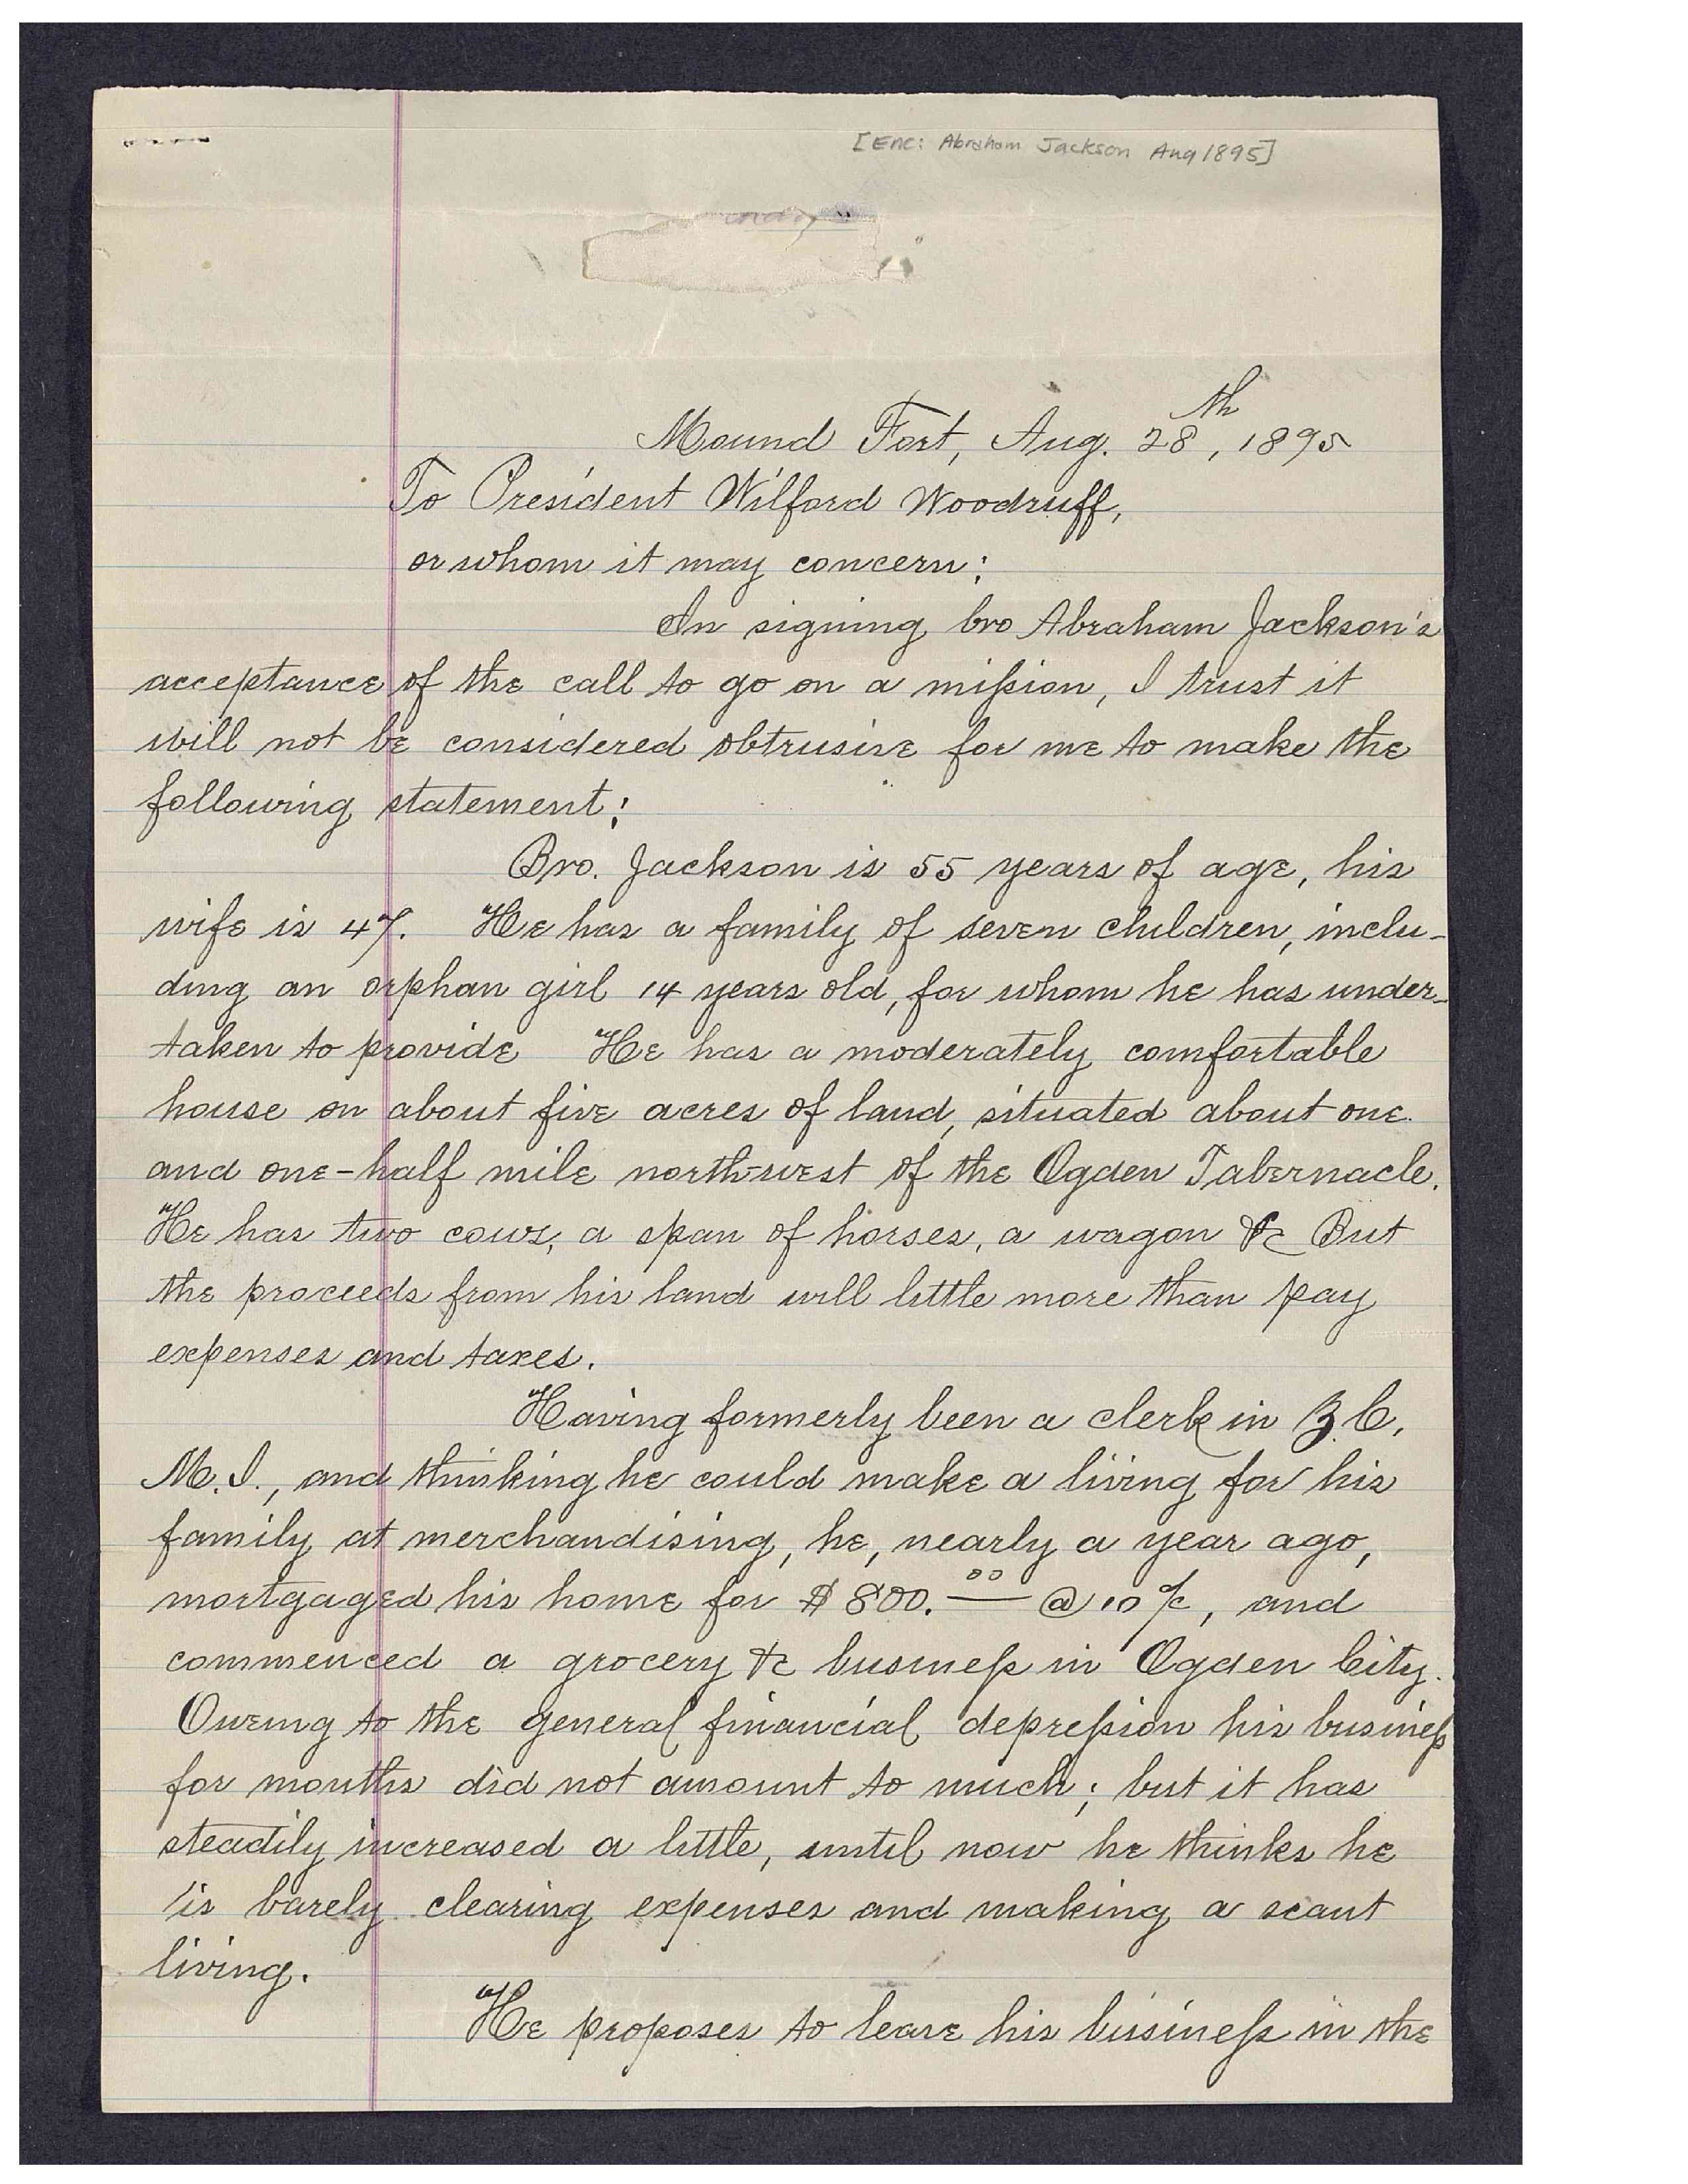 [Enc: Abraham Jackson Aug 1895]
Mound Fort, Aug. 28th, 1895
To President Wilford Woodruff,
or whom it may concern:
In signing bro Abraham Jackson's
acceptance of the call to go on a mission, I trust it
will not be considered obtrusive for me to make the
following statement:
Bro. Jackson is 55 years of age, his
wife is 47. He has a family of seven children, inclu-
ding an orphan girl 14 years old, for whom he has under-
taken to provide He has a moderately comfortable
house on about five acres of land, situated about one
and one-half mile north-west of the Ogden Tabernacle.
He has two cows, a span of horses, a wagon &c But
the proceeds from his land will little more than pay
expenses and taxes.
Having formerly been a clerk in Z. C.
M. I., and thinking he could make a living for his
family at merchandising, he, nearly a year ago,
mortgaged his home for $800.00 @ 10 %, and
commenced a grocery &c business in Ogden City.
Owing to the general financial depression his business
for months did not amount to much; but it has
steadily increased a little, until now he thinks he
is barely clearing expenses and making a scant
living.
He proposes to leave his business in the